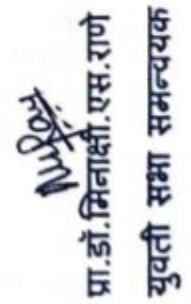 प्रा.डॉ.मिनाक्षी.एस.राणे
युवती सभा समन्वयक